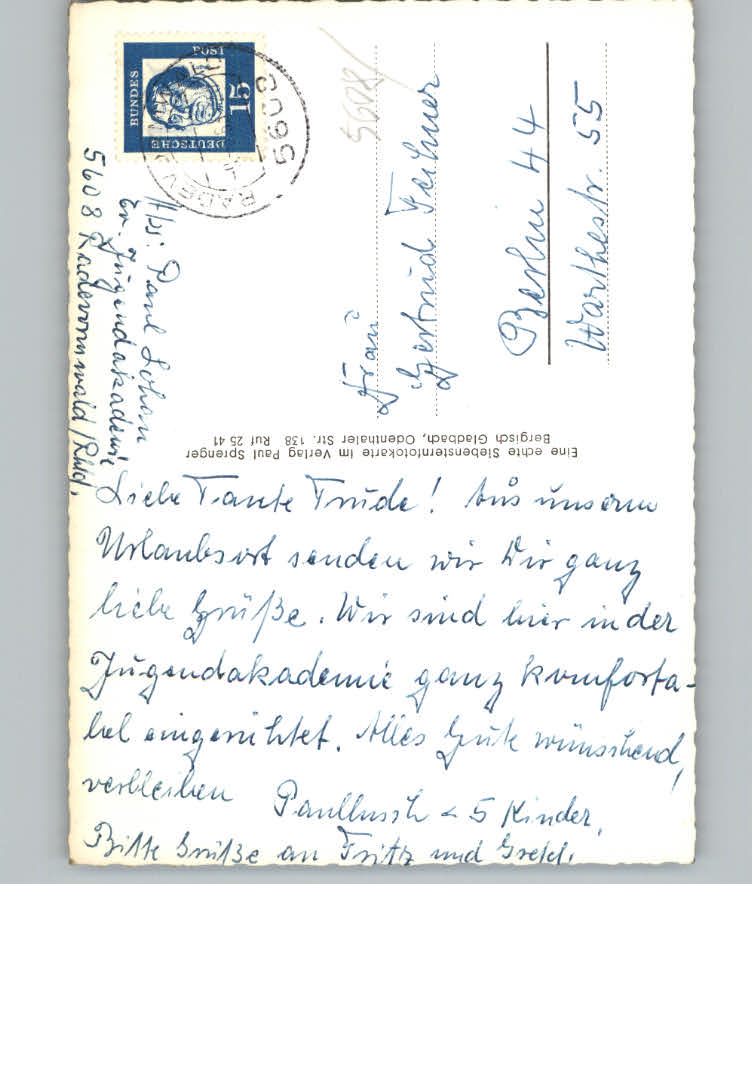 DEUTSCHE
BUNDES
POST
15
5608
RADEV
5608
Abs: Paul
Ev. Jugendakademie
5608 Radevormwald/Rhld.
Frau
Gertrud
Berlin 44
Warthestr. 55
Eine echte Siebensternfotokarte im Verlag Paul Sprenger
Bergisch Gladbach, Odenthaler Str. 138 Ruf 25 41
Liebe Tante Trude! Aus unserm
Urlaubsort senden wir Dir ganz
liebe Grüße. Wir sind hier in der
Jugendakademie ganz komforta-
bel eingerichtet. Alles Gute wünschend,
verbleiben 5 Kinder,
Bitte Grüße an Fritz und Gretel.